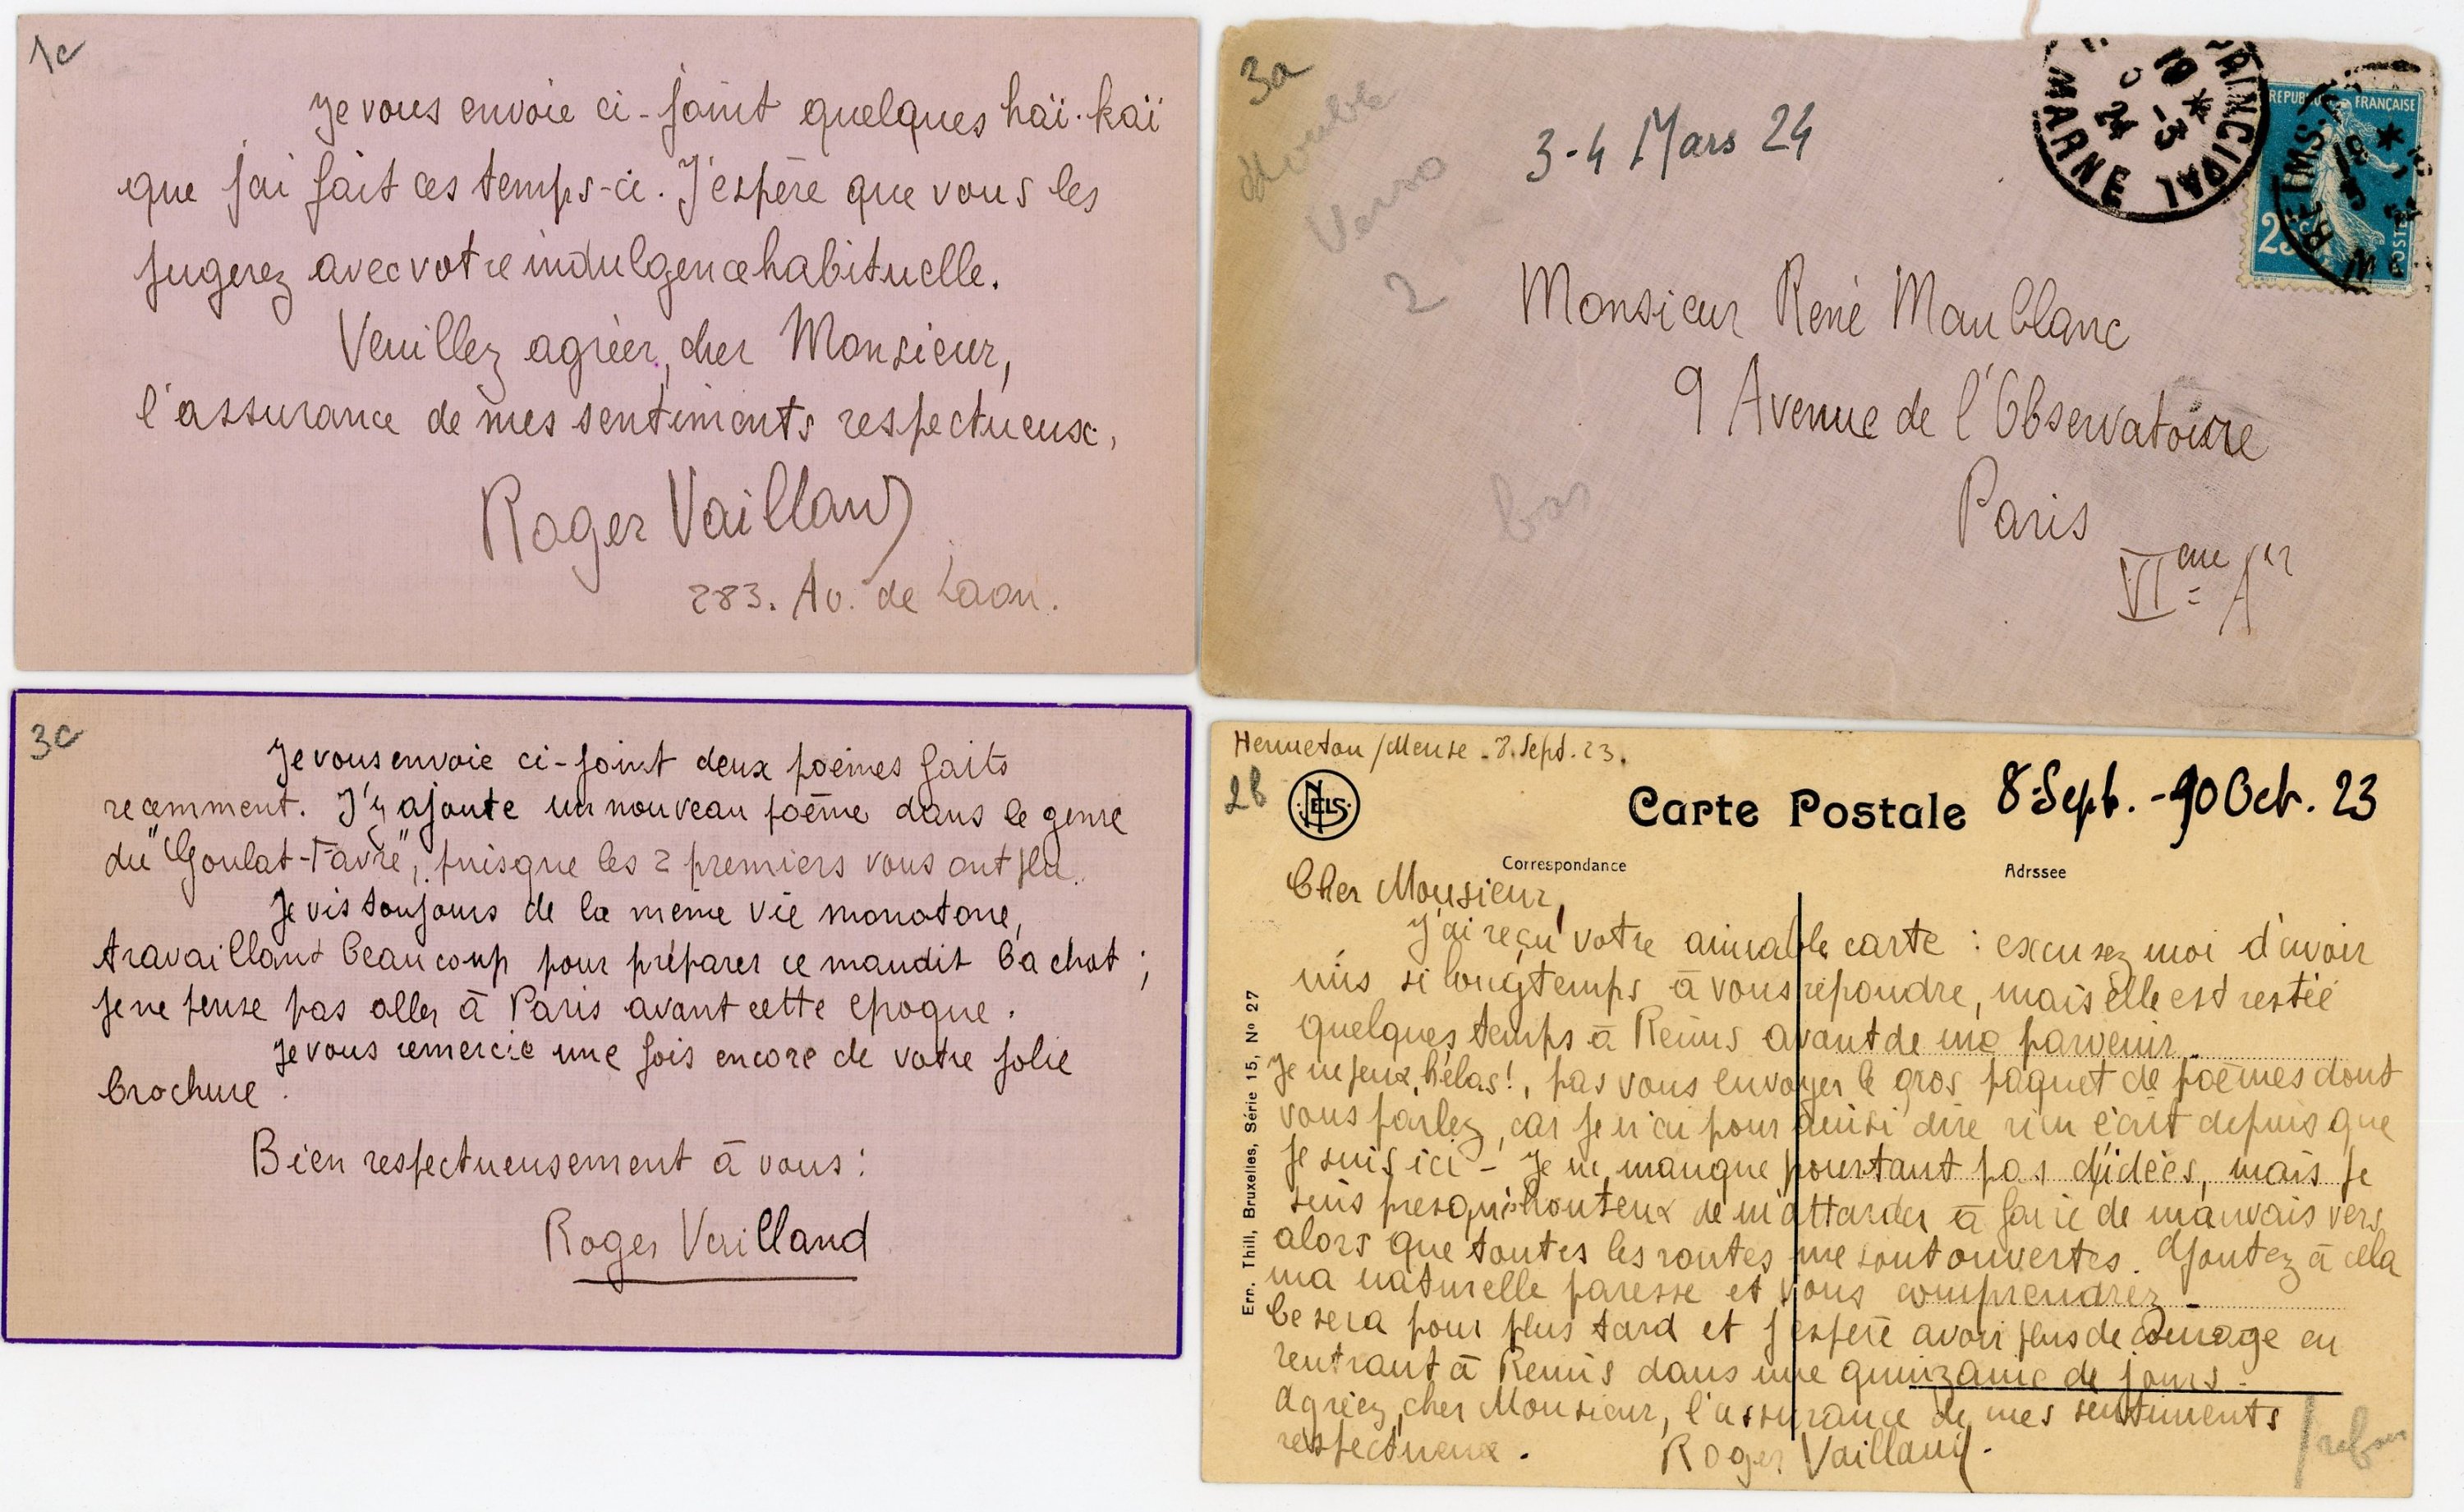 1c
Je vous envoie ci-joint quelques haï-kaï
que j'ai fait ces temps-ci. J'espère que vous les
jugerez avec votre indulgence habituelle.
Veuillez agréer, cher Monsieur,
l'assurance de mes sentiments respectueux,
Roger Vailland
283. Av. de Laon.
3a
double
Verso
2
3-4 Mars 24
MARNE
PRINCIPAL
REIMS
REPUBLIQUE FRANÇAISE
25c
Monsieur René Maublanc
9 Avenue de l'Observatoire
Paris
VIème Ar
bas
3c
Je vous envoie ci-joint deux poèmes faits
recemment. J'y ajoute un nouveau poème dans le genre
du "Goulat-Favre", puisque les 2 premiers vous ont plu.
Je vis toujours de la même vie monotone,
travaillant beaucoup pour préparer ce maudit bachot ;
je ne pense pas aller à Paris avant cette epoque.
Je vous remercie une fois encore de votre jolie
brochure.
Bien respectueusement à vous :
Roger Vailland
/Meuse - 8. Sept. 23.
2b
NELS
Carte Postale
8-Sept. - Oct. 23
Correspondance
Adrssee
Ern. Thill, Bruxelles, Série 15, No 27
Cher Monsieur,
J'ai reçu votre aimable carte : excusez moi d'avoir
mis si longtemps à vous répondre, mais elle est restée
quelques temps à Reims avant de me parvenir.
Je ne peux, hélas!, pas vous envoyer le gros paquet de poèmes dont
vous parlez, car je n'ai pour ainsi dire rien écrit depuis que
je suis ici - Je ne manque pourtant pas d'idées, mais je
suis presque honteux de m'attarder à faire de mauvais vers
alors que toutes les routes me sont ouvertes. Ajoutez à cela
ma naturelle paresse et vous comprendrez -
Ce sera pour plus tard et j'espère avoir plus de courage en
rentrant à Reims dans une quinzaine de jours -
Agréez, cher Monsieur, l'assurance de mes sentiments
respectueux.
Roger Vailland.